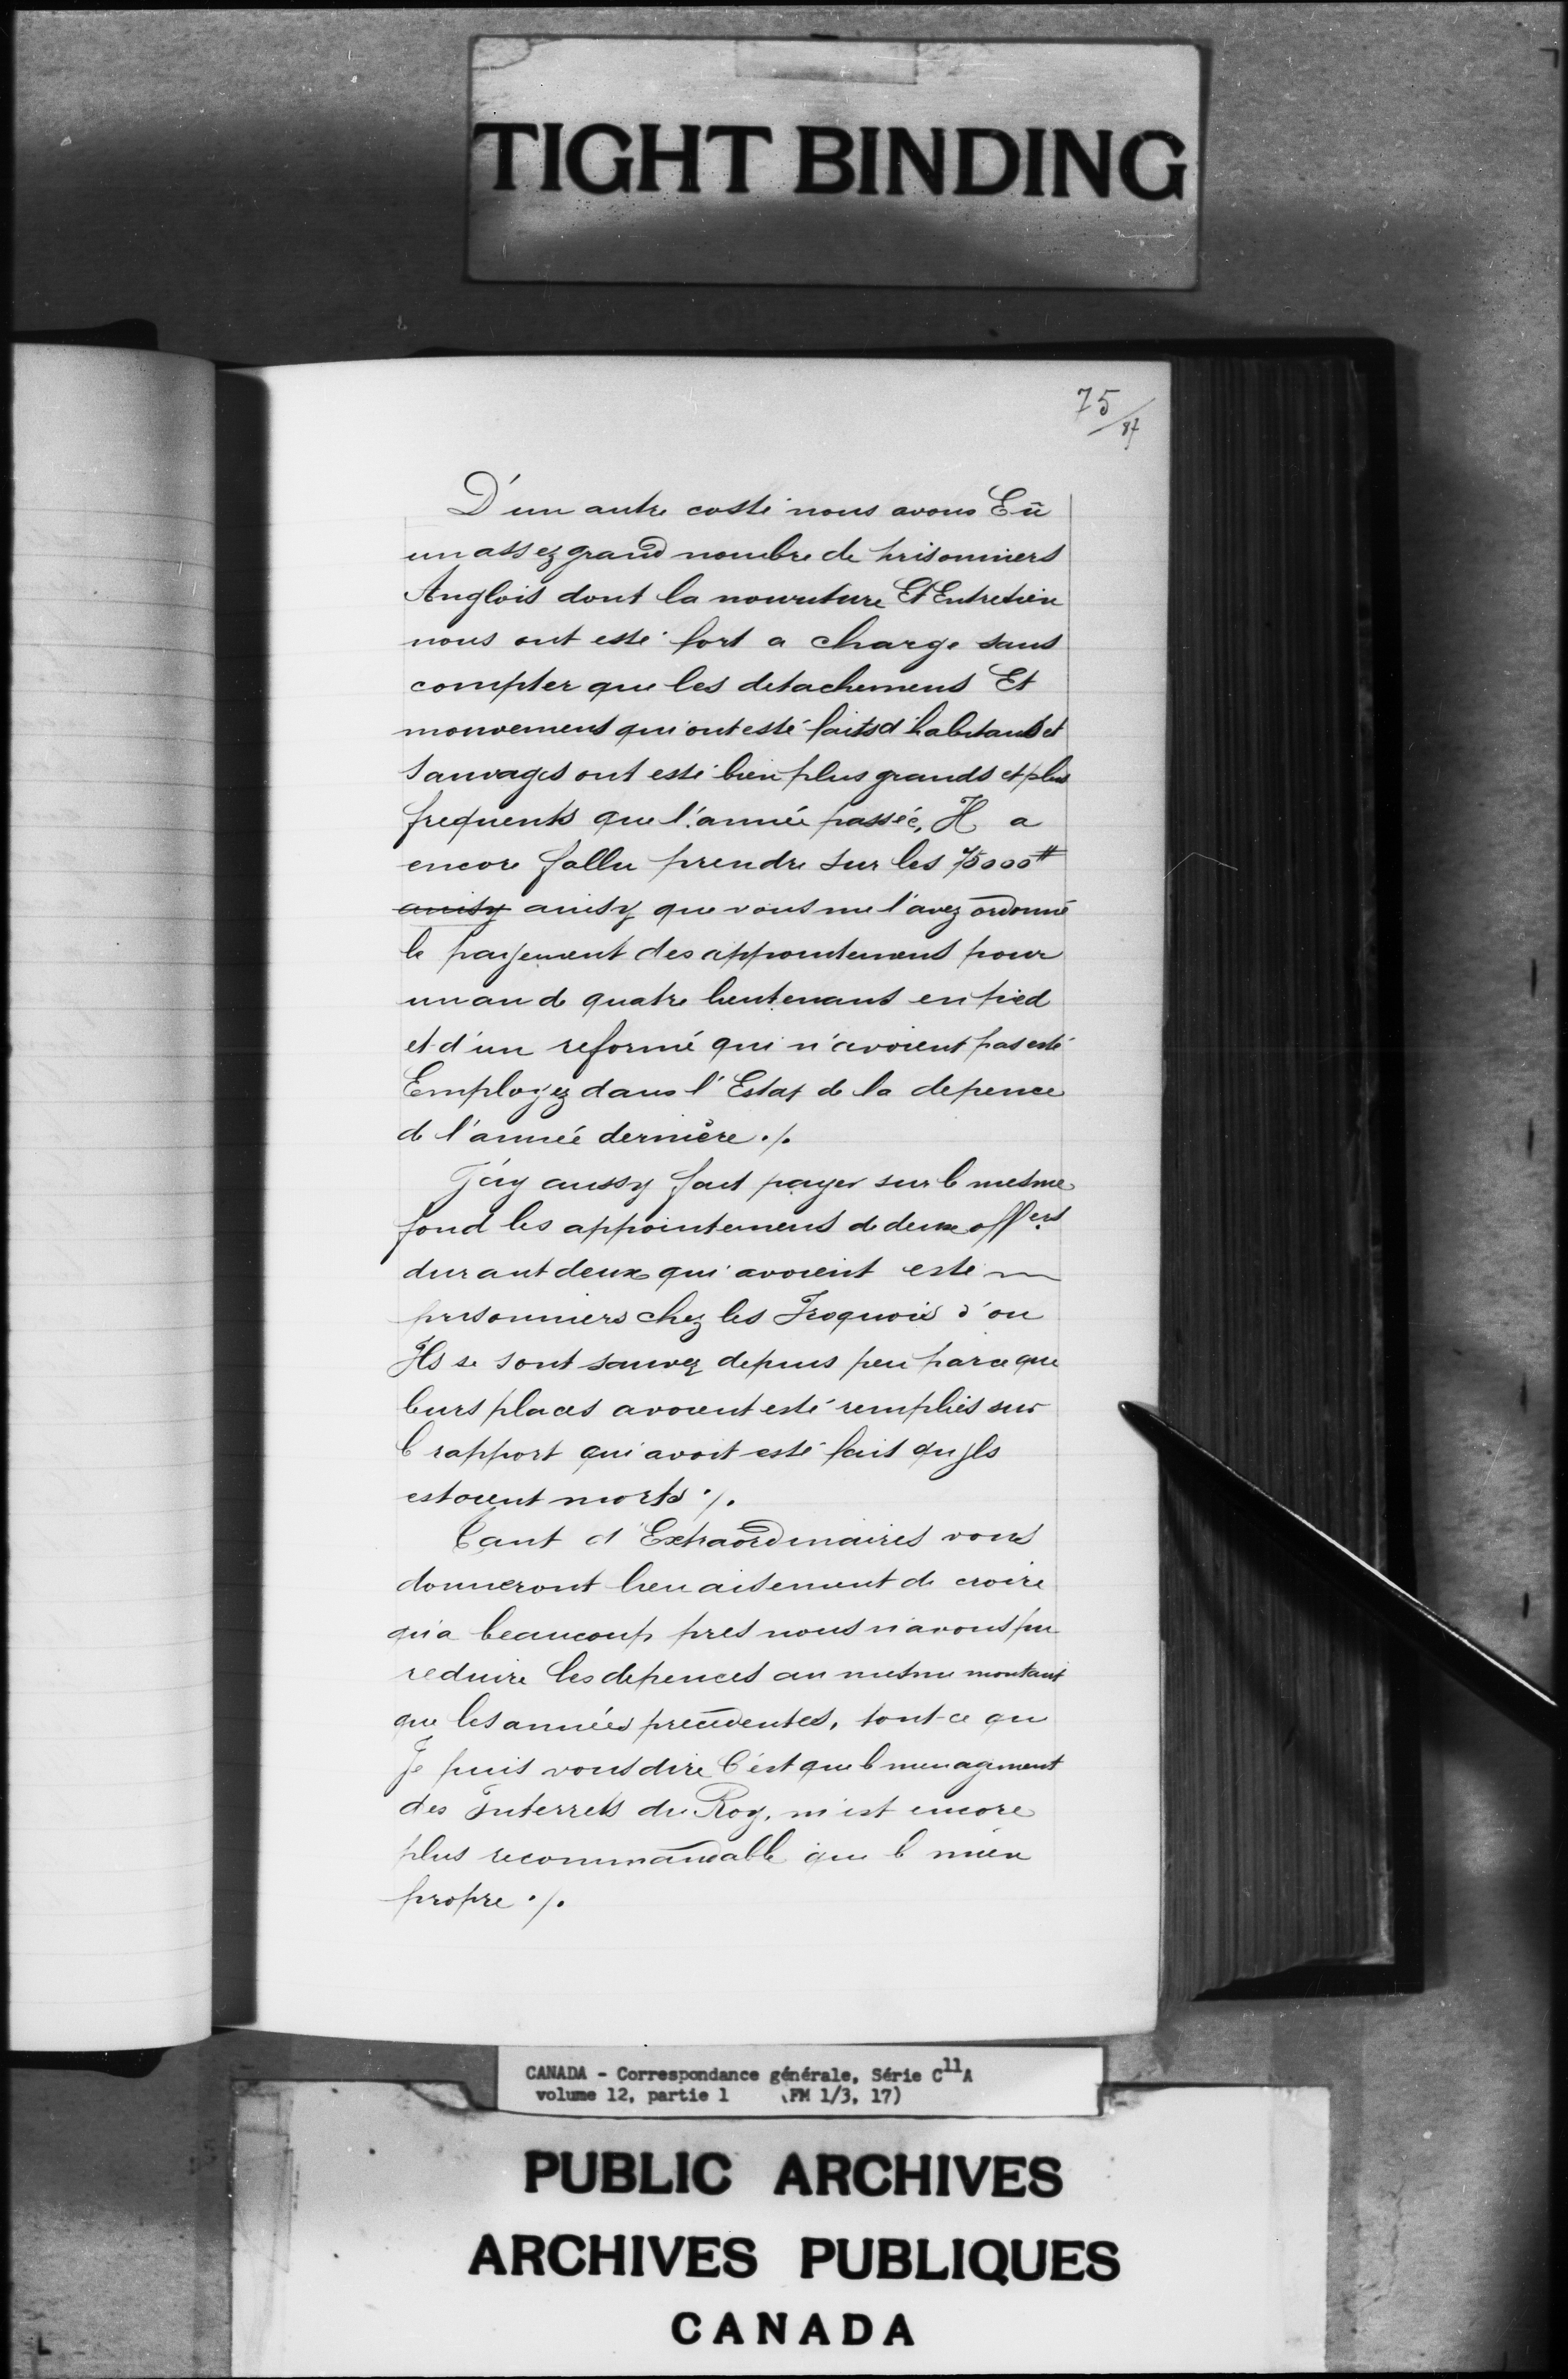 TIGHT BINDING
75/87
D'un autre costé nous avons Eû
un assez grand nombre de prisonniers
Anglois dont la nourriture Et Entretien
nous ont esté fort a charge sans
compter que les detachemens Et
mouvemens qui ont esté faits d'habitants et
Sauvages ont esté bien plus grands et plus
frequents que l'année passée, Il a
encore fallu prendre sur les 75000#
ainsy ainsy que vous me l'avez ordonné
le payement des appointemens pour
un an de quatre lieutenans en pied
et d'un reformé qui n'avoient pas esté
Employez dans l'Estat de la depence
de l'année dernière ./.
J'ay aussy fait payer sur le mesme
fond les appointemens de deux offers
durant deux qui avoient esté
prisonniers chez les Iroquois d'ou
Ils se sont sauvez depuis peu parce que
leurs places avoient esté remplies sur
le rapport qui avoit esté fait qu'Ils
estoient morts ./.
Tant d'Extraordinaires vous
donneront bien aisement de croire
qu'a beaucoup pres nous n'avons pu
reduire les depences au mesme montant
que les années precedentes, tout ce que
Je puis vous dire C'est que le menagement
des Interrets du Roy, m'est encore
plus recommandable que le mien
propre ./.
CANADA - Correspondance générale, Série C11A
volume 12, partie 1 (FM 1/3, 17)
PUBLIC ARCHIVES
ARCHIVES PUBLIQUES
CANADA